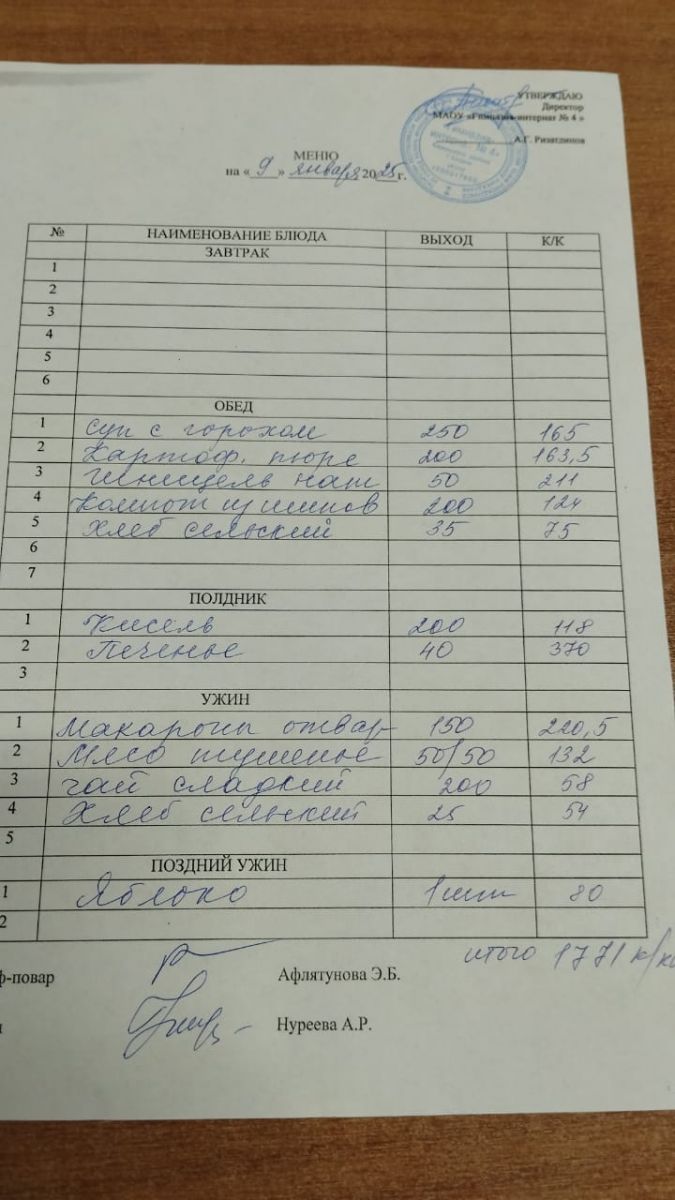 УТВЕРЖДАЮ
Директор
МАОУ «Гимназия-интернат № 4 »
А.Г. Ризатдинов
МЕНЮ
на « 9 » января 2025 г.
№ НАИМЕНОВАНИЕ БЛЮДА ВЫХОД К/К
ЗАВТРАК
1
2
3
4
5
6
ОБЕД
1 Суп с горохом 250 165
2 Картоф. пюре 200 163,5
3 Шницель нат 50 211
4 Компот из 200 124
5 Хлеб сельский 35 75
6
7
ПОЛДНИК
1 Кисель 200 118
2 Печенье 40 370
3
УЖИН
1 Макароны отвар- 150 220,5
2 Мясо тушеные 50/50 132
3 чай сладкий 200 58
4 Хлеб сельский 25 54
5
ПОЗДНИЙ УЖИН
1 Яблоко 1 шт 80
2
итого 1771 к/кк
ф-повар Афлятунова Э.Б.
Нуреева А.Р.